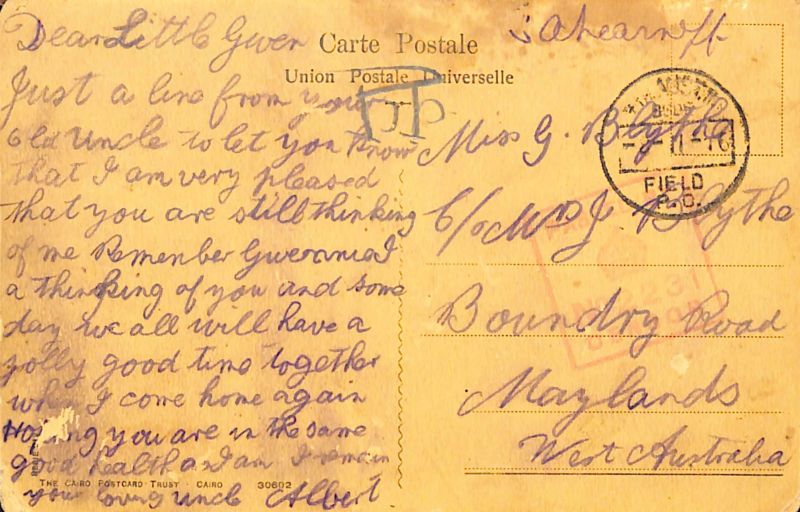 Dear Little Gwen
Just a line from your
old Uncle to let you know
that I am very pleased
that you are still thinking
of me Remember Gwennie I
a thinking of you and some
day we all will have a
jolly good time together
when I come home again
Hoping you are in the same
good health as I am I remain
your loving uncle Albert
THE CAIRO POSTCARD TRUST · CAIRO 30602
Carte Postale
Union Postale Universelle
FIELD
P.O.
Miss G. Blythe
C/o Mrs J Blythe
Boundry Road
Maylands
West Australia